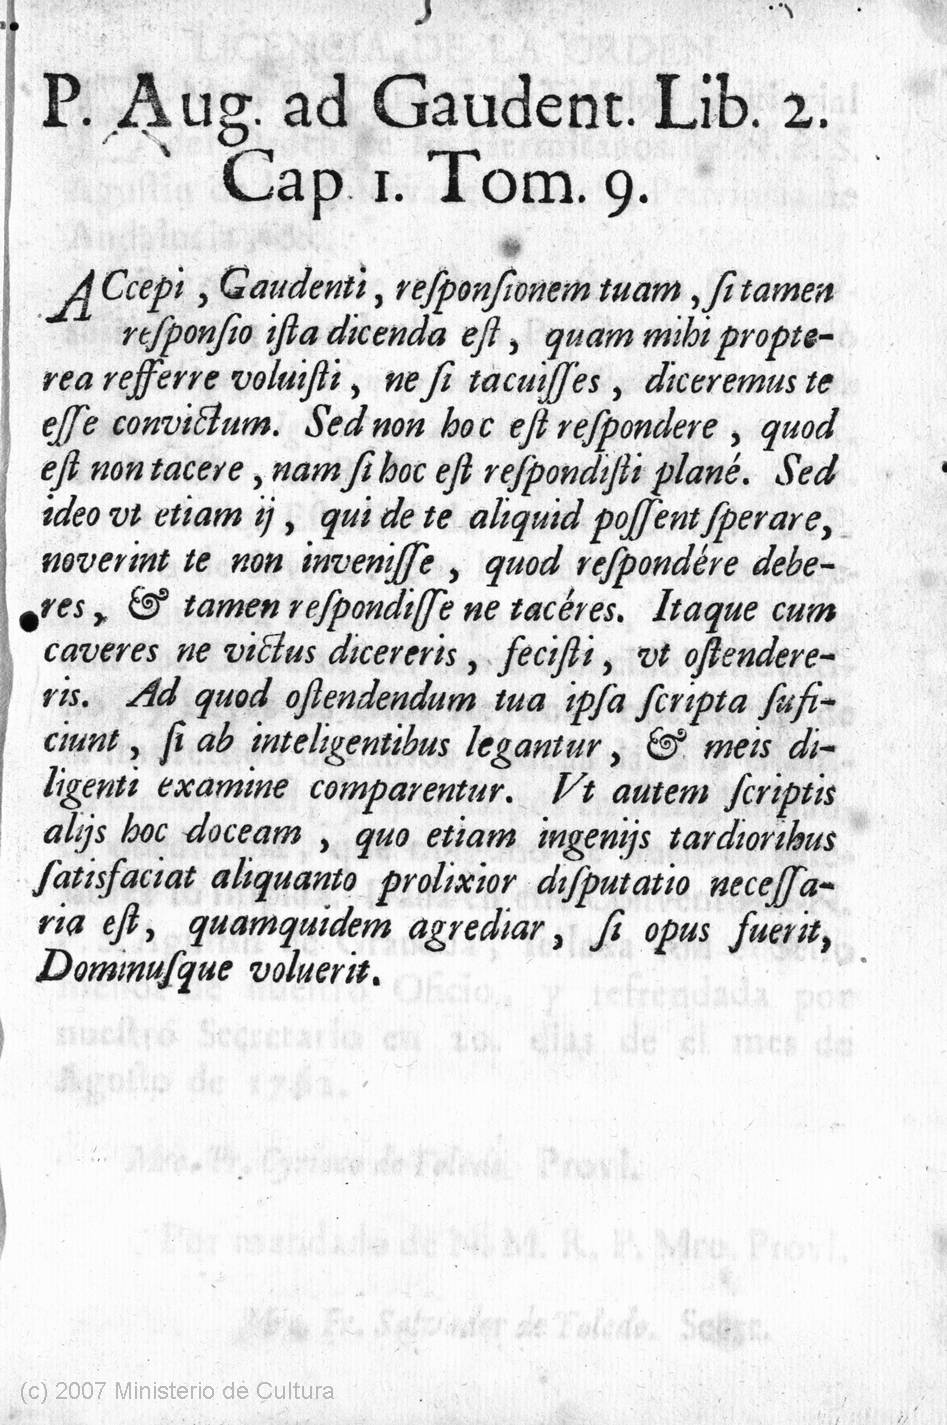 P. Aug. ad Gaudent. Lib. 2.
Cap 1. Tom. 9.
ACcepi , Gaudenti , reſponſionem tuam , ſi tamen
reſponſio iſta dicenda eſt , quam mihi propte-
rea refferre voluiſti , ne ſi tacuiſſes , diceremus te
eſſe convictum. Sed non hoc eſt reſpondere , quod
eſt non tacere , nam ſi hoc eſt reſpondiſti plané. Sed
ideo vt etiam ij , qui de te aliquid poſſent ſperare,
noverint te non inveniſſe , quod reſpondére debe-
res , & tamen reſpondiſſe ne tacéres. Itaque cum
caveres ne victus dicereris , feciſti , vt oſtendere-
ris. Ad quod oſtendendum tua ipſa ſcripta ſufi-
ciunt , ſi ab inteligentibus legantur , & meis di-
ligenti examine comparentur. Vt autem ſcriptis
alijs hoc doceam , quo etiam ingenijs tardioribus
ſatisfaciat aliquanto prolixior diſputatio neceſſa-
ria eſt , quamquidem agrediar , ſi opus fuerit,
Dominuſque voluerit.
(c) 2007 Ministerio de Cultura